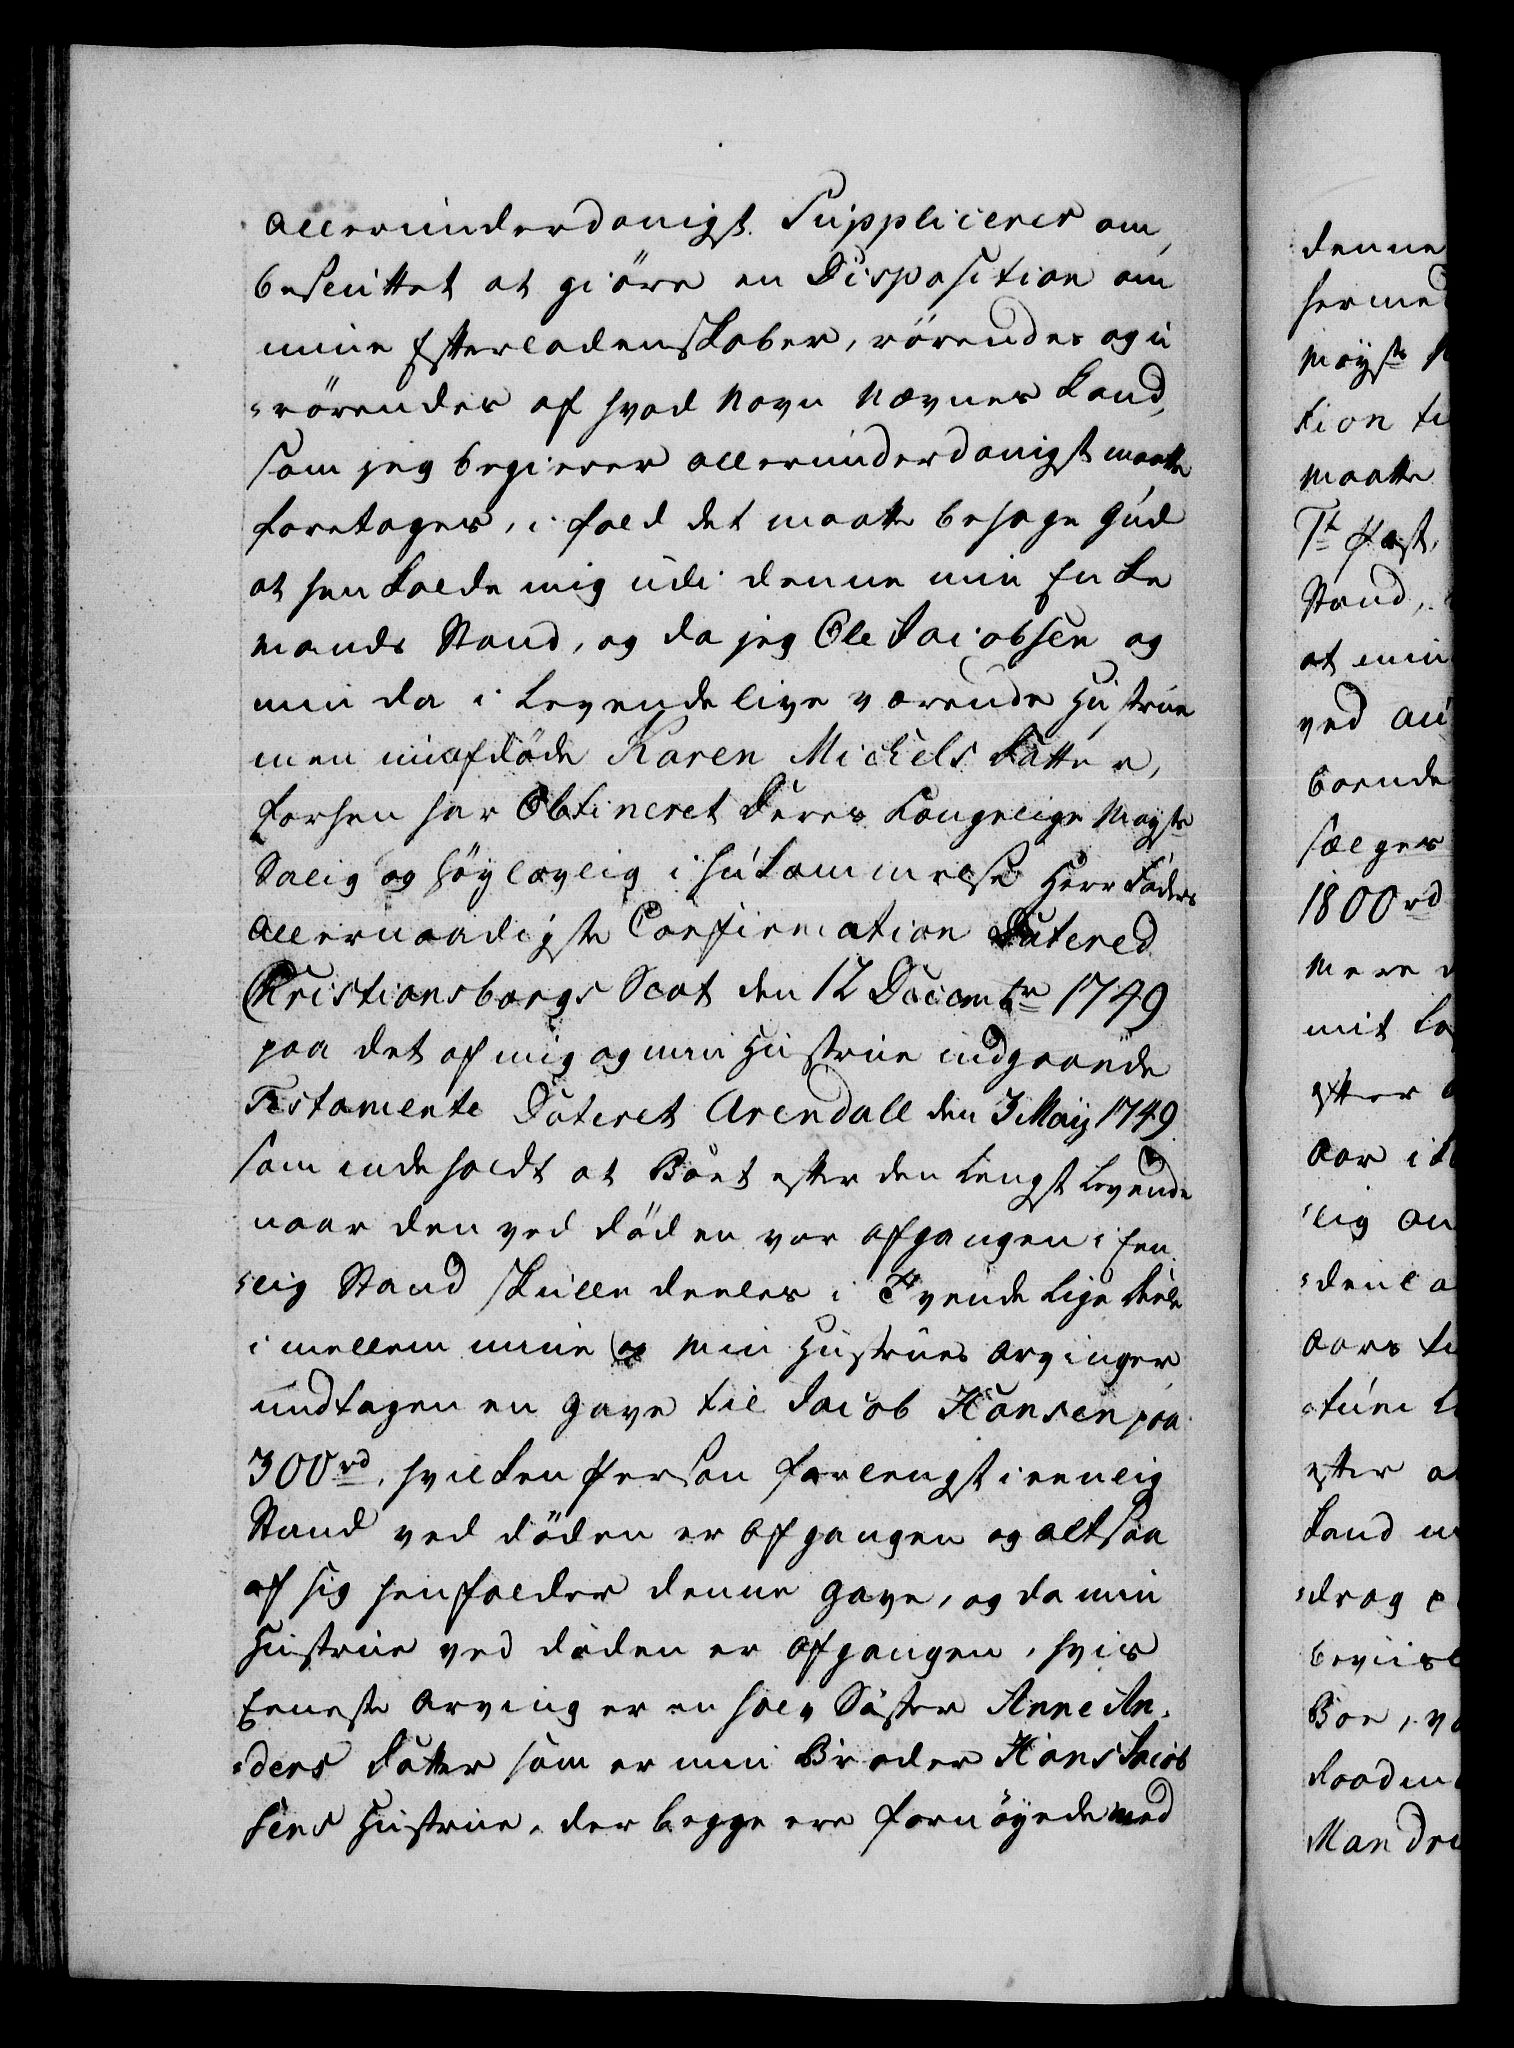 allerunderdanigst Supplicerer om,
besluttet at giöre en Disposition om
mine Efterladenskaber, rörendes og u
=rörendes af hvad Navn nævnes kand,
som jeg begierer allerunderdanigst maatte
foretages, i fald det maatte behage Gud
at henkalde mig udi denne min Enke
mands Stand, og da jeg Ole Jacobsen og
min da i Levende live værende Hustrue
men nu afdöde Karen Michels Datter,
forhen har Obtineret Deres Kongelige Mayts
Salig og Höylovlig i hukommelse Herr Faders
allernaadigste Confirmation Datered
Christiansborgs Slot den 12 Decembr 1749
paa det af mig og min Hustrue indgaaede
Testamente Dateret Arendall den 3 Maij 1749
som indeholdt at Boet efter den Lengst Levende
naar den ved döden var afgangen i Een
=lig Stand skulle deeles i Tvende Lige Deele
i mellem mine og min Hustrues Arvinger
undtagen en Gave til Jacob Hansen paa
300rd, hvilken Person forlengst i eenlig
Stand ved döden er afgangen og altsaa
af sig henfalder denne Gave, og da min
Hustrue ved döden er afgangen, hvis
Eeneste Arving er en halv Söster Anne An,
=ders Datter som er min Broder Hans Jacob
sens Hustrue, der begge ere fornöyede med
denne
hermed
Mayts
tion
maatte
Stand,
at min
ved
boende
sælges
1800rd
mere
mit
efter
Aar i
lig
Aars
efter
kand
=drag
Boe,